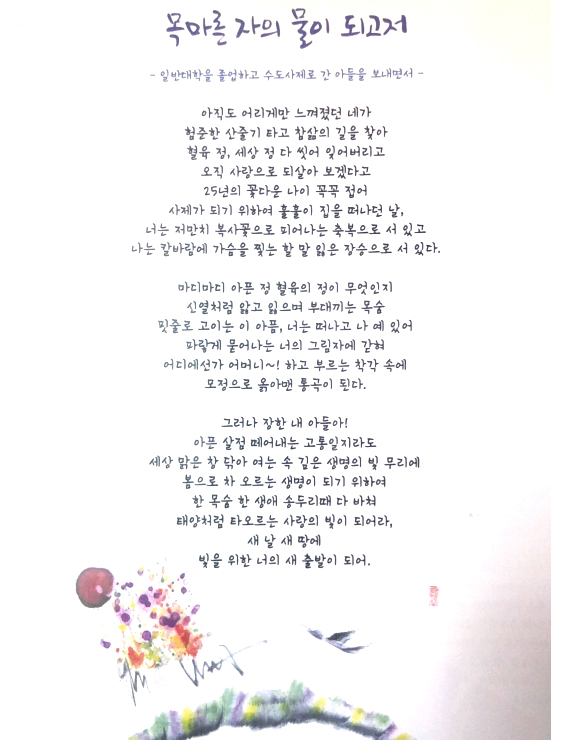 목마른 자의 물이 되고저
- 일반대학을 졸업하고 수도사제로 간 아들을 보내면서 -
아직도 어리게만 느껴졌던 네가
험준한 산줄기 타고 참삶의 길을 찾아
혈육 정, 세상 정 다 씻어 잊어버리고
오직 사랑으로 되살아 보겠다고
25년의 꽃다운 나이 꼭꼭 접어
사제가 되기 위하여 훌훌이 집을 떠나던 날,
너는 저만치 복사꽃으로 피어나는 축복으로 서 있고
나는 칼바람에 가슴을 찢는 할 말 잃은 장승으로 서 있다.
마디마디 아픈 정 혈육의 정이 무엇인지
신열처럼 앓고 잃으며 부대끼는 목숨
핏줄로 고이는 이 아픔, 너는 떠나고 나 예 있어
파랗게 묻어나는 너의 그림자에 갇혀
어디에선가 어머니~! 하고 부르는 착각 속에
모정으로 옭아맨 통곡이 된다.
그러나 장한 내 아들아!
아픈 살점 떼어내는 고통일지라도
세상 맑은 창 닦아 여는 속 깊은 생명의 빛 무리에
봄으로 차 오르는 생명이 되기 위하여
한 목숨 한 생애 송두리째 다 바쳐
태양처럼 타오르는 사랑의 빛이 되어라,
새 날 새 땅에
빛을 위한 너의 새 출발이 되어.